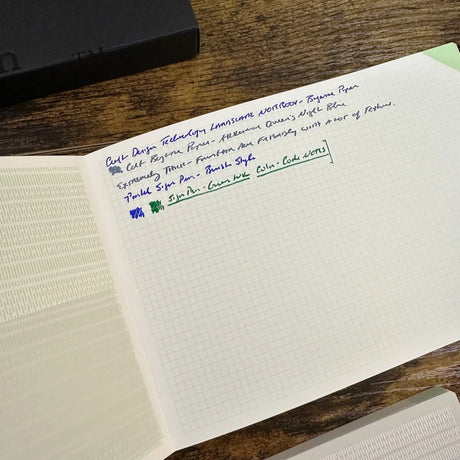 n TM
Cult Design Technology LANDSCAPE NOTEBOOK - Paper
Cult Paper - Queen's Night Blue
Extremely Thick - Fountain Pen Friendly with A Lot of Texture.
Pentel Sign Pen - Brush Style
Sign Pen - Green Ink Color-Code NOTES